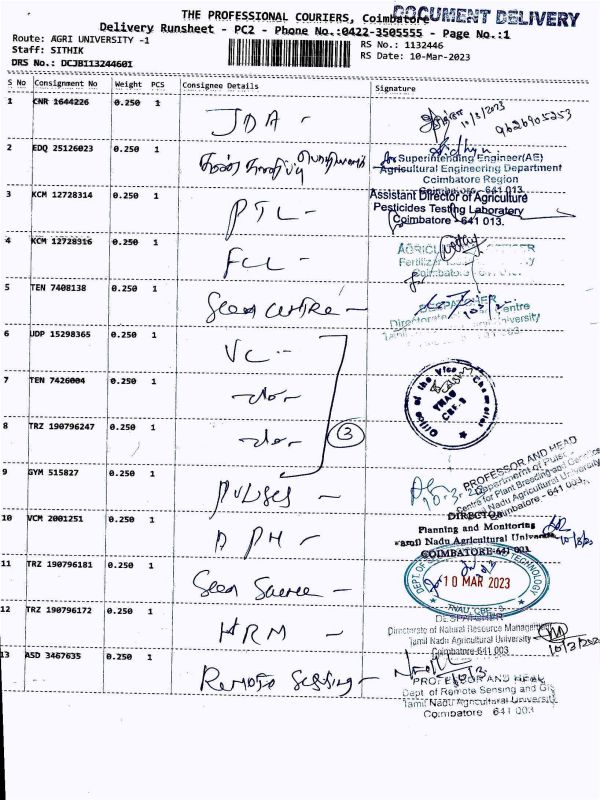 THE PROFESSIONAL COURIERS, Coimbatore
DOCUMENT DELIVERY
Delivery Runsheet - PC2 - Phone No.:0422-3505555 - Page No.:1
Route: AGRI UNIVERSITY -1
RS No.: 1132446
Staff: SITHIK
RS Date: 10-Mar-2023
DRS No.: DCJB113244601
S No Consignment No Weight PCS Consignee Details Signature
1 CNR 1644226 0.250 1 JDA - 10/3/2023
9626905253
2 EDQ 25126023 0.250 1
Superintending Engineer(AE)
Agricultural Engineering Department
Coimbatore Region
Coimbatore - 641 013.
3 KCM 12728314 0.250 1 PTL -
Assistant Director of Agriculture
Pesticides Testing Laboratory
Coimbatore - 641 013.
4 KCM 12728316 0.250 1 FCL -
5 TEN 7408138 0.250 1 Seed centre -
DESPATCHER
6 UDP 15298365 0.250 1 VC -
7 TEN 7426004 0.250 1 -do-
Office of the Vice Chancellor
TNAU
CBE-3
8 TRZ 190796247 0.250 1 -do-
3
9 GYM 515827 0.250 1 PULSES -
PROFESSOR AND HEAD
Department of Pulses
Centre for Plant Breeding and Genetics
Tamil Nadu Agricultural University
Coimbatore - 641 003.
10 VCM 2001251 0.250 1 APH -
DIRECTOR
Planning and Monitoring
Tamil Nadu Agricultural University
COIMBATORE-641 003
11 TRZ 190796181 0.250 1 Seed Science -
10 MAR 2023
TNAU, CBE - 3
12 TRZ 190796172 0.250 1 HRM -
DESPATCHER
Directorate of Natural Resource Management
Tamil Nadu Agricultural University
Coimbatore-641 003
10/3/2023
13 ASD 3467635 0.250 1 Remote Sensing -
PROFESSOR AND HEAD
Dept of Remote Sensing and GIS
Tamil Nadu Agricultural University
Coimbatore 641 003